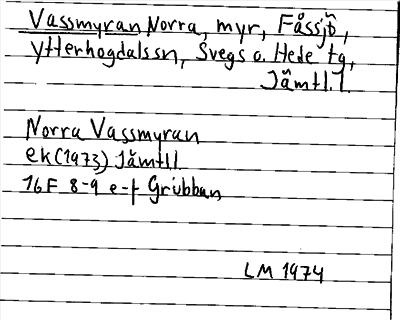 Vassmyran Norra, myr, Fåssjö,
Ytterhogdalssn, Svegs o. Hede tg,
Jämtl. l
Norra Vassmyran
ek (1973) Jämtl l
16F 8-9 e-f Grubban
LM 1974